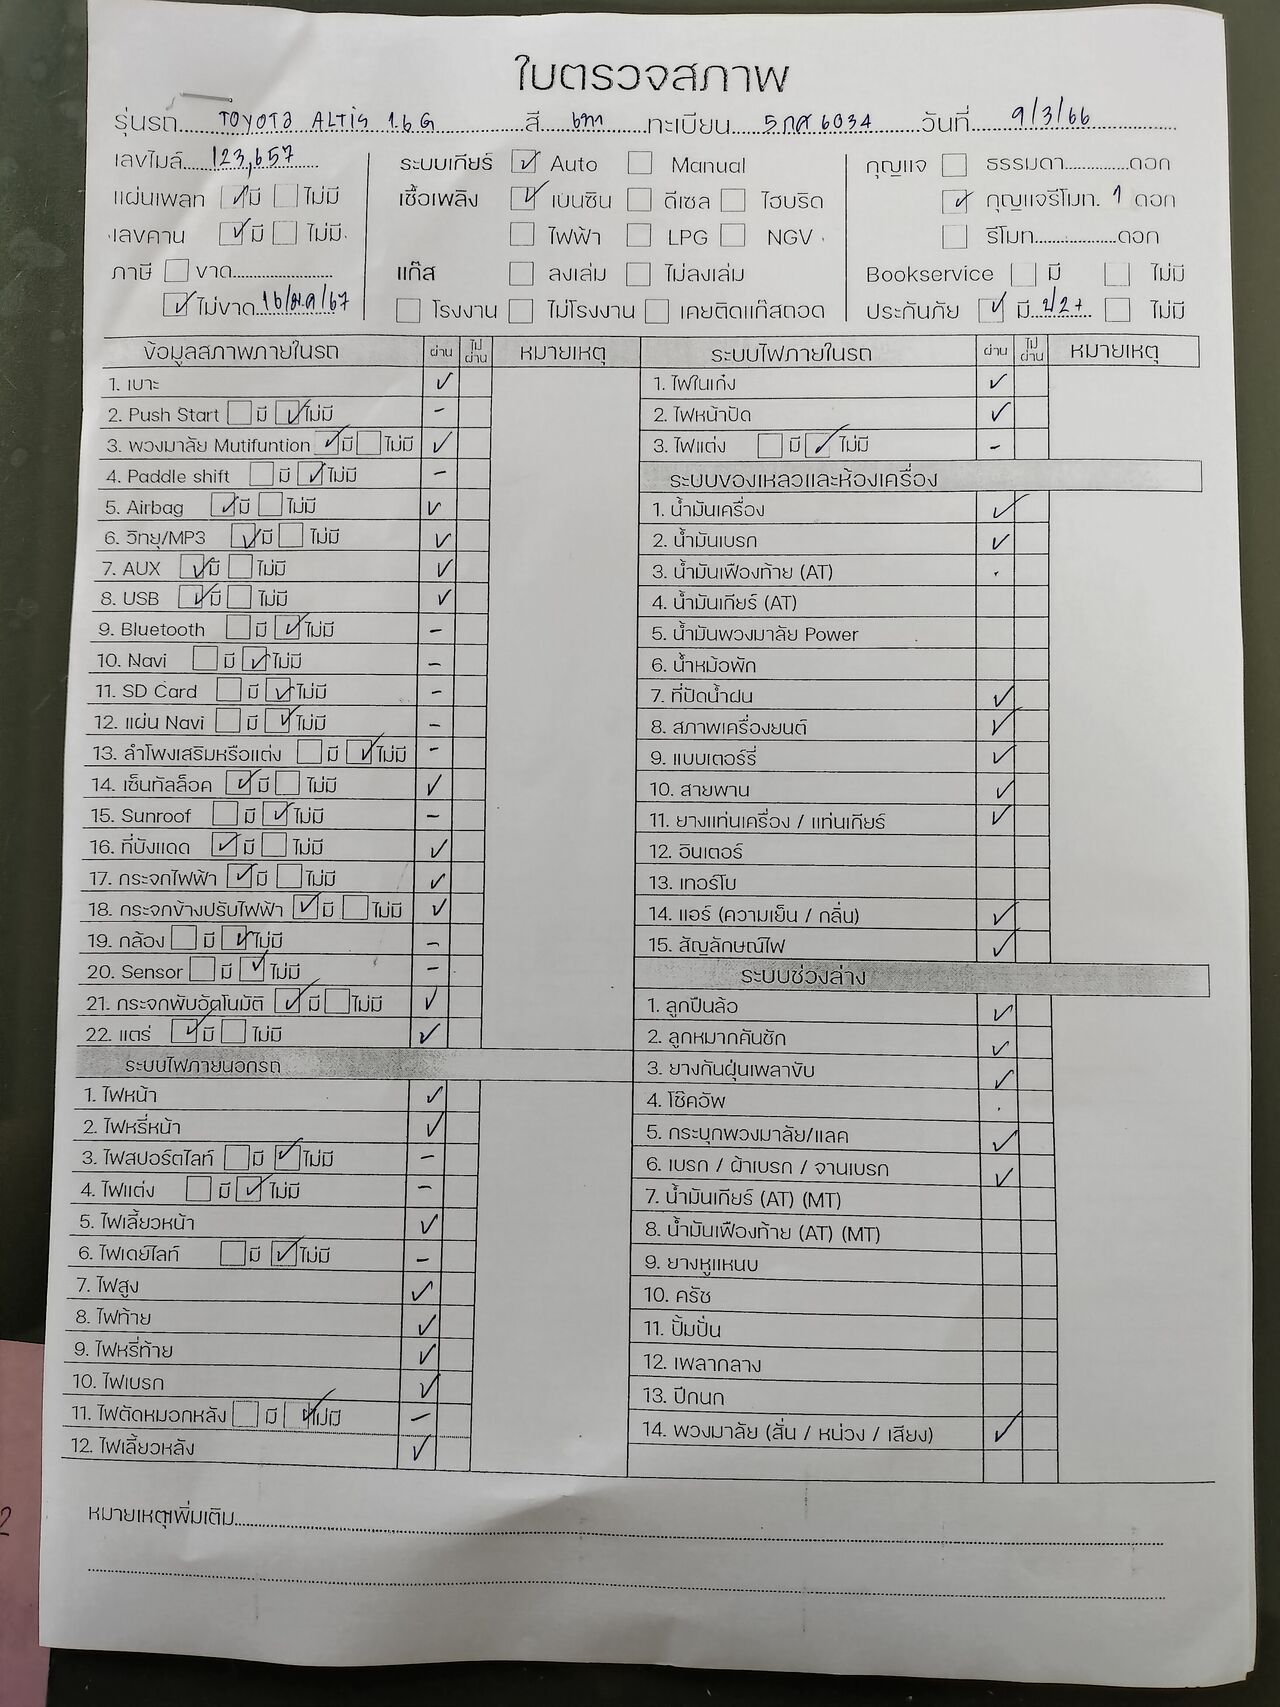 ใบตรวจสภาพ
รุ่นรถ TOYOTA ALTIS 1.6 G สี เทา ทะเบียน 5กศ 6034 วันที่ 9/3/66
เลขไมล์ 123,657 ระบบเกียร์ ☑ Auto ☐ Manual กุญแจ ☐ ธรรมดา..........ดอก
แผ่นเพลท ☑ มี ☐ ไม่มี เชื้อเพลิง ☑ เบนซิน ☐ ดีเซล ☐ ไฮบริด ☑ กุญแจรีโมท. 1 ดอก
เลขคาน ☑ มี ☐ ไม่มี ☐ ไฟฟ้า ☐ LPG ☐ NGV ☐ รีโมท..........ดอก
ภาษี ☐ ขาด.......... แก๊ส ☐ ลงเล่ม ☐ ไม่ลงเล่ม Bookservice ☐ มี ☐ ไม่มี
☑ ไม่ขาด 16/ม.ค/67 ☐ โรงงาน ☐ ไม่โรงงาน ☐ เคยติดแก๊สถอด ประกันภัย ☑ มี ป2+ ☐ ไม่มี
ข้อมูลสภาพภายในรถ ผ่าน ไม่ผ่าน หมายเหตุ
1. เบาะ ✓
2. Push Start ☐ มี ☑ ไม่มี -
3. พวงมาลัย Mutifuntion ☑ มี ☐ ไม่มี ✓
4. Paddle shift ☐ มี ☑ ไม่มี -
5. Airbag ☑ มี ☐ ไม่มี ✓
6. วิทยุ/MP3 ☑ มี ☐ ไม่มี ✓
7. AUX ☑ มี ☐ ไม่มี ✓
8. USB ☑ มี ☐ ไม่มี ✓
9. Bluetooth ☐ มี ☑ ไม่มี -
10. Navi ☐ มี ☑ ไม่มี -
11. SD Card ☐ มี ☑ ไม่มี -
12. แผ่น Navi ☐ มี ☑ ไม่มี -
13. ลำโพงเสริมหรือแต่ง ☐ มี ☑ ไม่มี -
14. เซ็นทัลล็อค ☑ มี ☐ ไม่มี ✓
15. Sunroof ☐ มี ☑ ไม่มี -
16. ที่บังแดด ☑ มี ☐ ไม่มี ✓
17. กระจกไฟฟ้า ☑ มี ☐ ไม่มี ✓
18. กระจกข้างปรับไฟฟ้า ☑ มี ☐ ไม่มี ✓
19. กล้อง ☐ มี ☑ ไม่มี -
20. Sensor ☐ มี ☑ ไม่มี -
21. กระจกพับอัตโนมัติ ☑ มี ☐ ไม่มี ✓
22. แตร่ ☑ มี ☐ ไม่มี ✓
ระบบไฟภายนอกรถ
1. ไฟหน้า ✓
2. ไฟหรี่หน้า ✓
3. ไฟสปอร์ตไลท์ ☐ มี ☑ ไม่มี -
4. ไฟแต่ง ☐ มี ☑ ไม่มี -
5. ไฟเลี้ยวหน้า ✓
6. ไฟเดย์ไลท์ ☐ มี ☑ ไม่มี -
7. ไฟสูง ✓
8. ไฟท้าย ✓
9. ไฟหรี่ท้าย ✓
10. ไฟเบรก ✓
11. ไฟตัดหมอกหลัง ☐ มี ☑ ไม่มี -
12. ไฟเลี้ยวหลัง ✓
ระบบไฟภายในรถ ผ่าน ไม่ผ่าน หมายเหตุ
1. ไฟในเก๋ง ✓
2. ไฟหน้าปัด ✓
3. ไฟแต่ง ☐ มี ☑ ไม่มี -
ระบบของเหลวและห้องเครื่อง
1. น้ำมันเครื่อง ✓
2. น้ำมันเบรก ✓
3. น้ำมันเฟืองท้าย (AT)
4. น้ำมันเกียร์ (AT)
5. น้ำมันพวงมาลัย Power
6. น้ำหม้อพัก
7. ที่ปัดน้ำฝน ✓
8. สภาพเครื่องยนต์ ✓
9. แบบเตอร์รี่ ✓
10. สายพาน ✓
11. ยางแท่นเครื่อง / แท่นเกียร์ ✓
12. อินเตอร์
13. เทอร์โบ
14. แอร์ (ความเย็น / กลิ่น) ✓
15. สัญลักษณ์ไฟ ✓
ระบบช่วงล่าง
1. ลูกปืนล้อ ✓
2. ลูกหมากคันชัก ✓
3. ยางกันฝุ่นเพลาขับ ✓
4. โช๊คอัพ
5. กระบุกพวงมาลัย/แลค ✓
6. เบรก / ผ้าเบรก / จานเบรก ✓
7. น้ำมันเกียร์ (AT) (MT)
8. น้ำมันเฟืองท้าย (AT) (MT)
9. ยางหูแหนบ
10. ครัช
11. ปั้มปั่น
12. เพลากลาง
13. ปีกนก
14. พวงมาลัย (สั่น / หน่วง / เสียง) ✓
หมายเหตุเพิ่มเติม